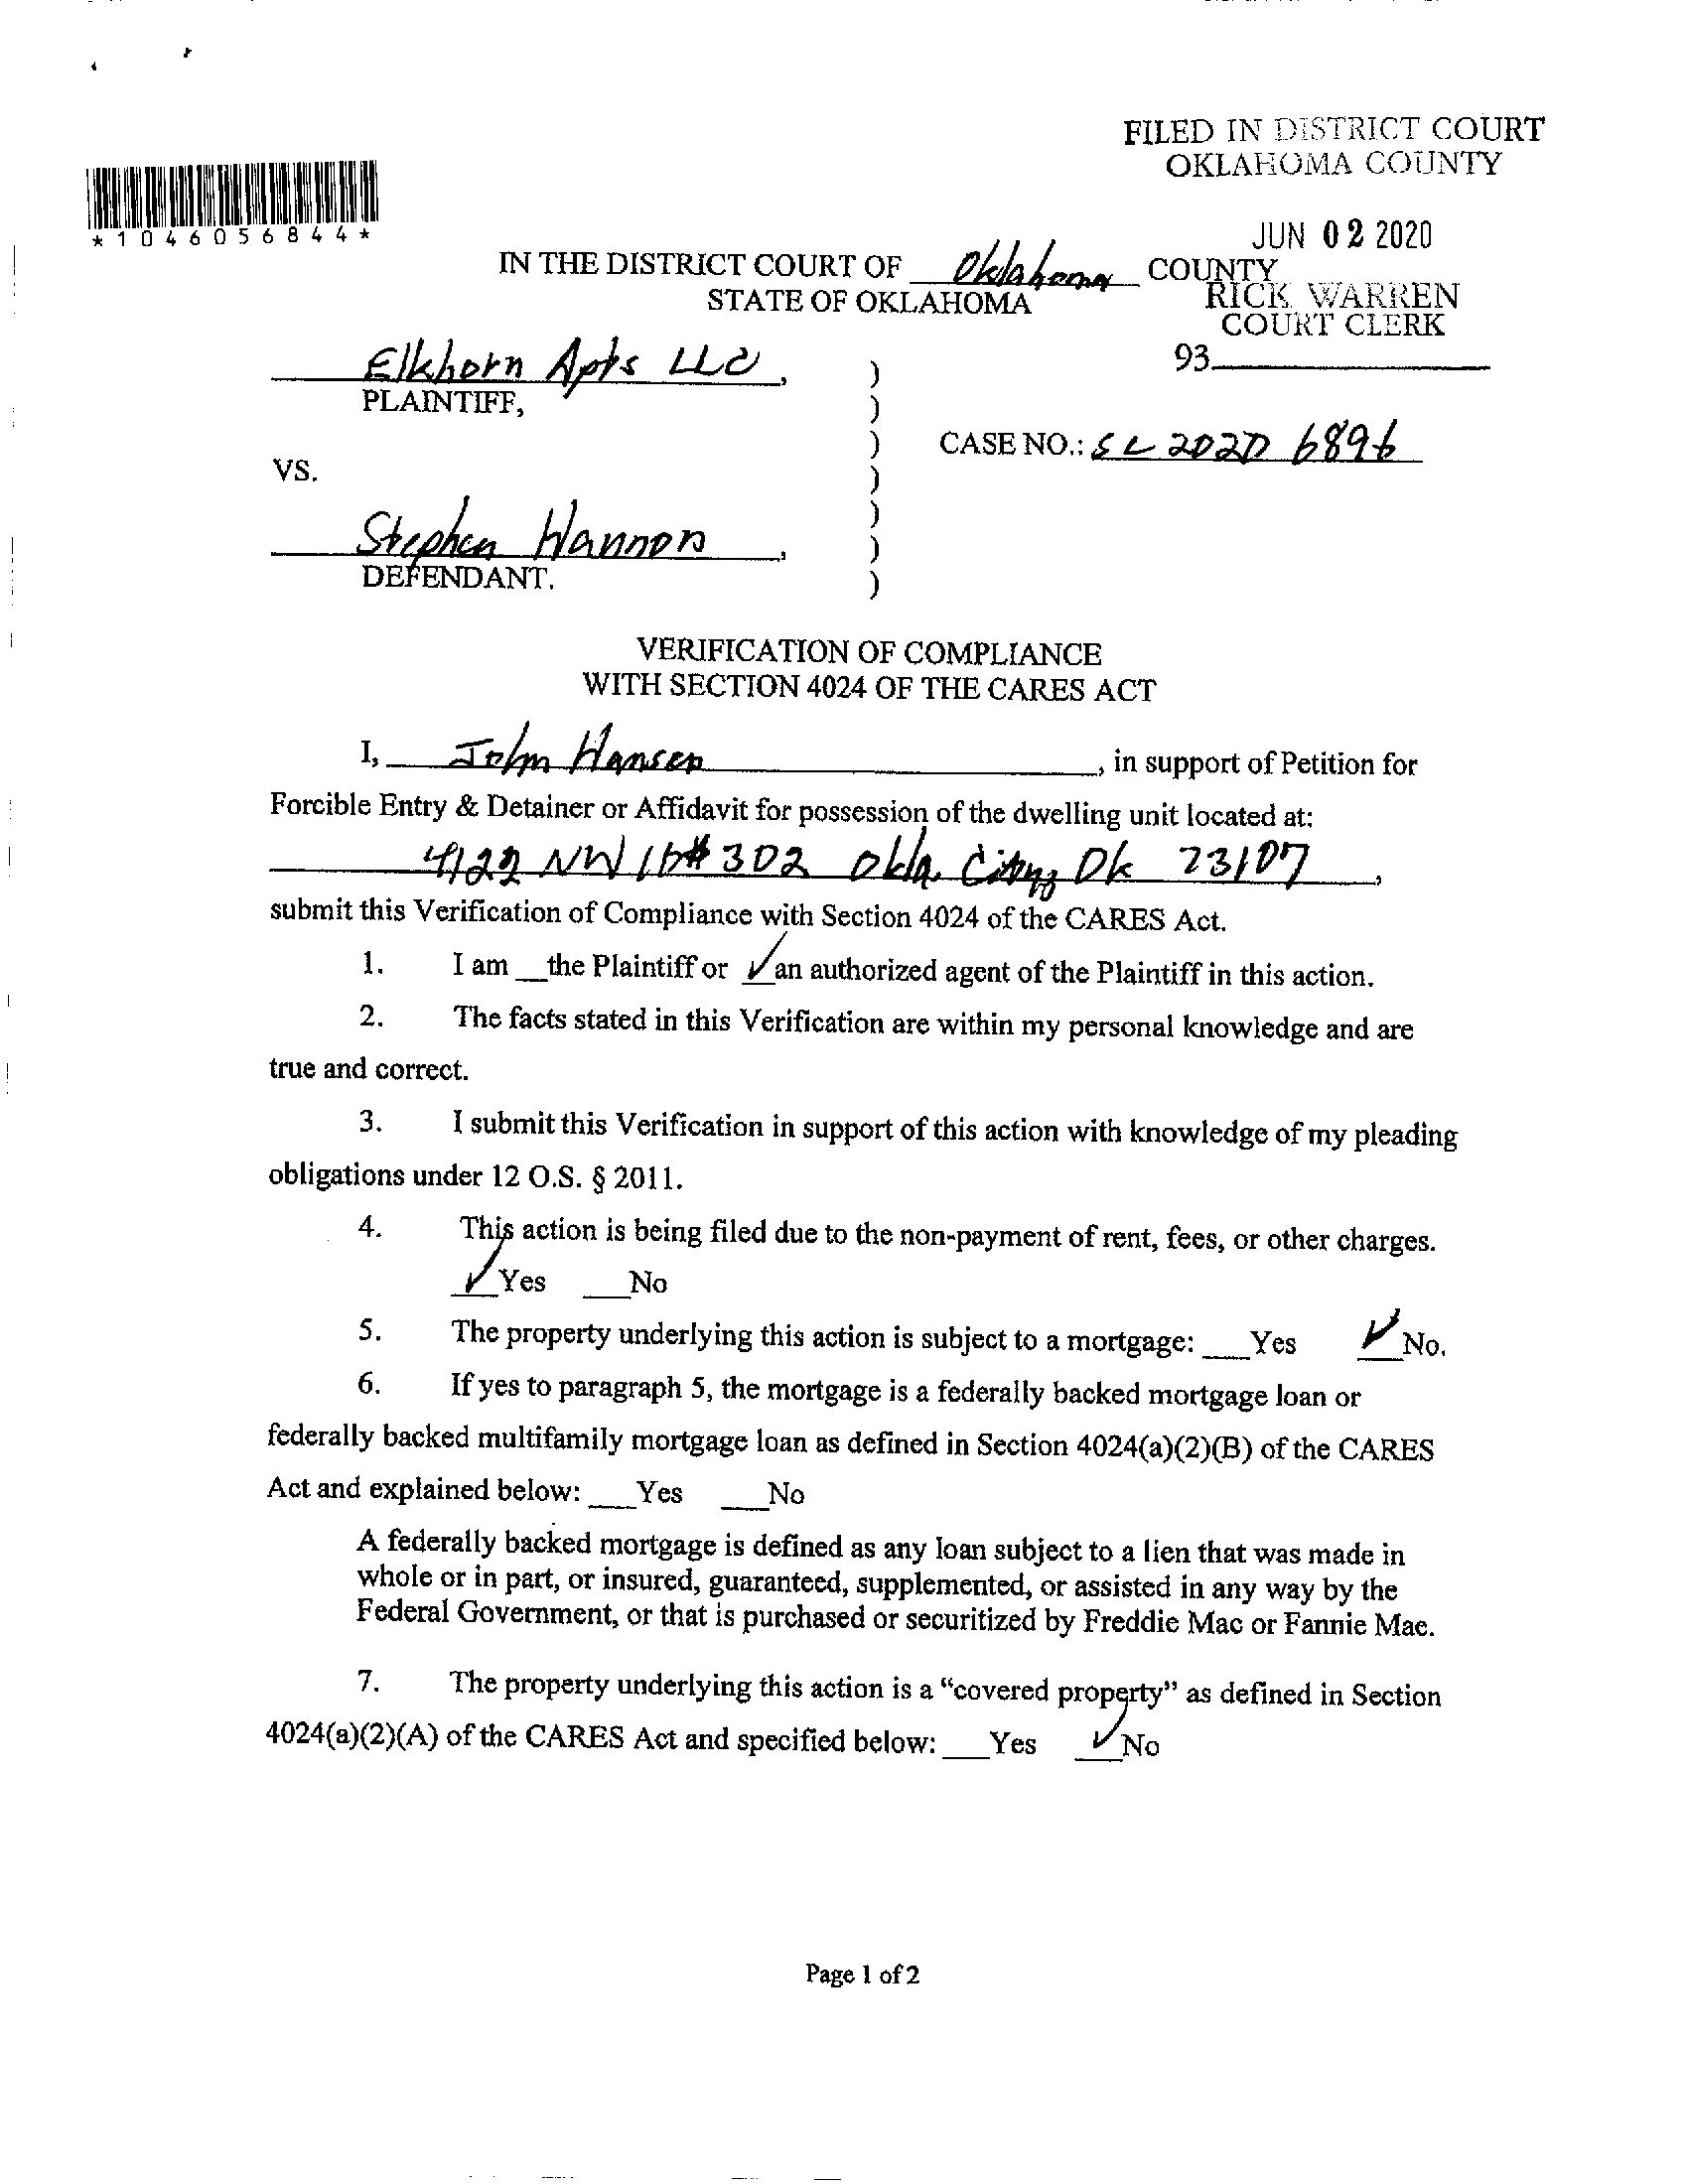 FILED IN DISTRICT COURT
OKLAHOMA COUNTY
*1046056844*
JUN 02 2020
IN THE DISTRICT COURT OF Oklahoma COUNTY
STATE OF OKLAHOMA
RICK WARREN
COURT CLERK
93
Elkhorn Apts LLC,
PLAINTIFF,
CASE NO.: SC 2020 6896
VS.
Stephen Hannon,
DEFENDANT.
VERIFICATION OF COMPLIANCE
WITH SECTION 4024 OF THE CARES ACT
I, John Hansen, in support of Petition for
Forcible Entry & Detainer or Affidavit for possession of the dwelling unit located at:
4122 NW #302 Okla. City Ok 73107,
submit this Verification of Compliance with Section 4024 of the CARES Act.
1. I am __the Plaintiff or ✓an authorized agent of the Plaintiff in this action.
2. The facts stated in this Verification are within my personal knowledge and are
true and correct.
3. I submit this Verification in support of this action with knowledge of my pleading
obligations under 12 O.S. § 2011.
4. This action is being filed due to the non-payment of rent, fees, or other charges.
✓Yes ___No
5. The property underlying this action is subject to a mortgage: ___Yes ✓No.
6. If yes to paragraph 5, the mortgage is a federally backed mortgage loan or
federally backed multifamily mortgage loan as defined in Section 4024(a)(2)(B) of the CARES
Act and explained below: ___Yes ___No
A federally backed mortgage is defined as any loan subject to a lien that was made in
whole or in part, or insured, guaranteed, supplemented, or assisted in any way by the
Federal Government, or that is purchased or securitized by Freddie Mac or Fannie Mae.
7. The property underlying this action is a “covered property” as defined in Section
4024(a)(2)(A) of the CARES Act and specified below: ___Yes ✓No
Page 1 of 2